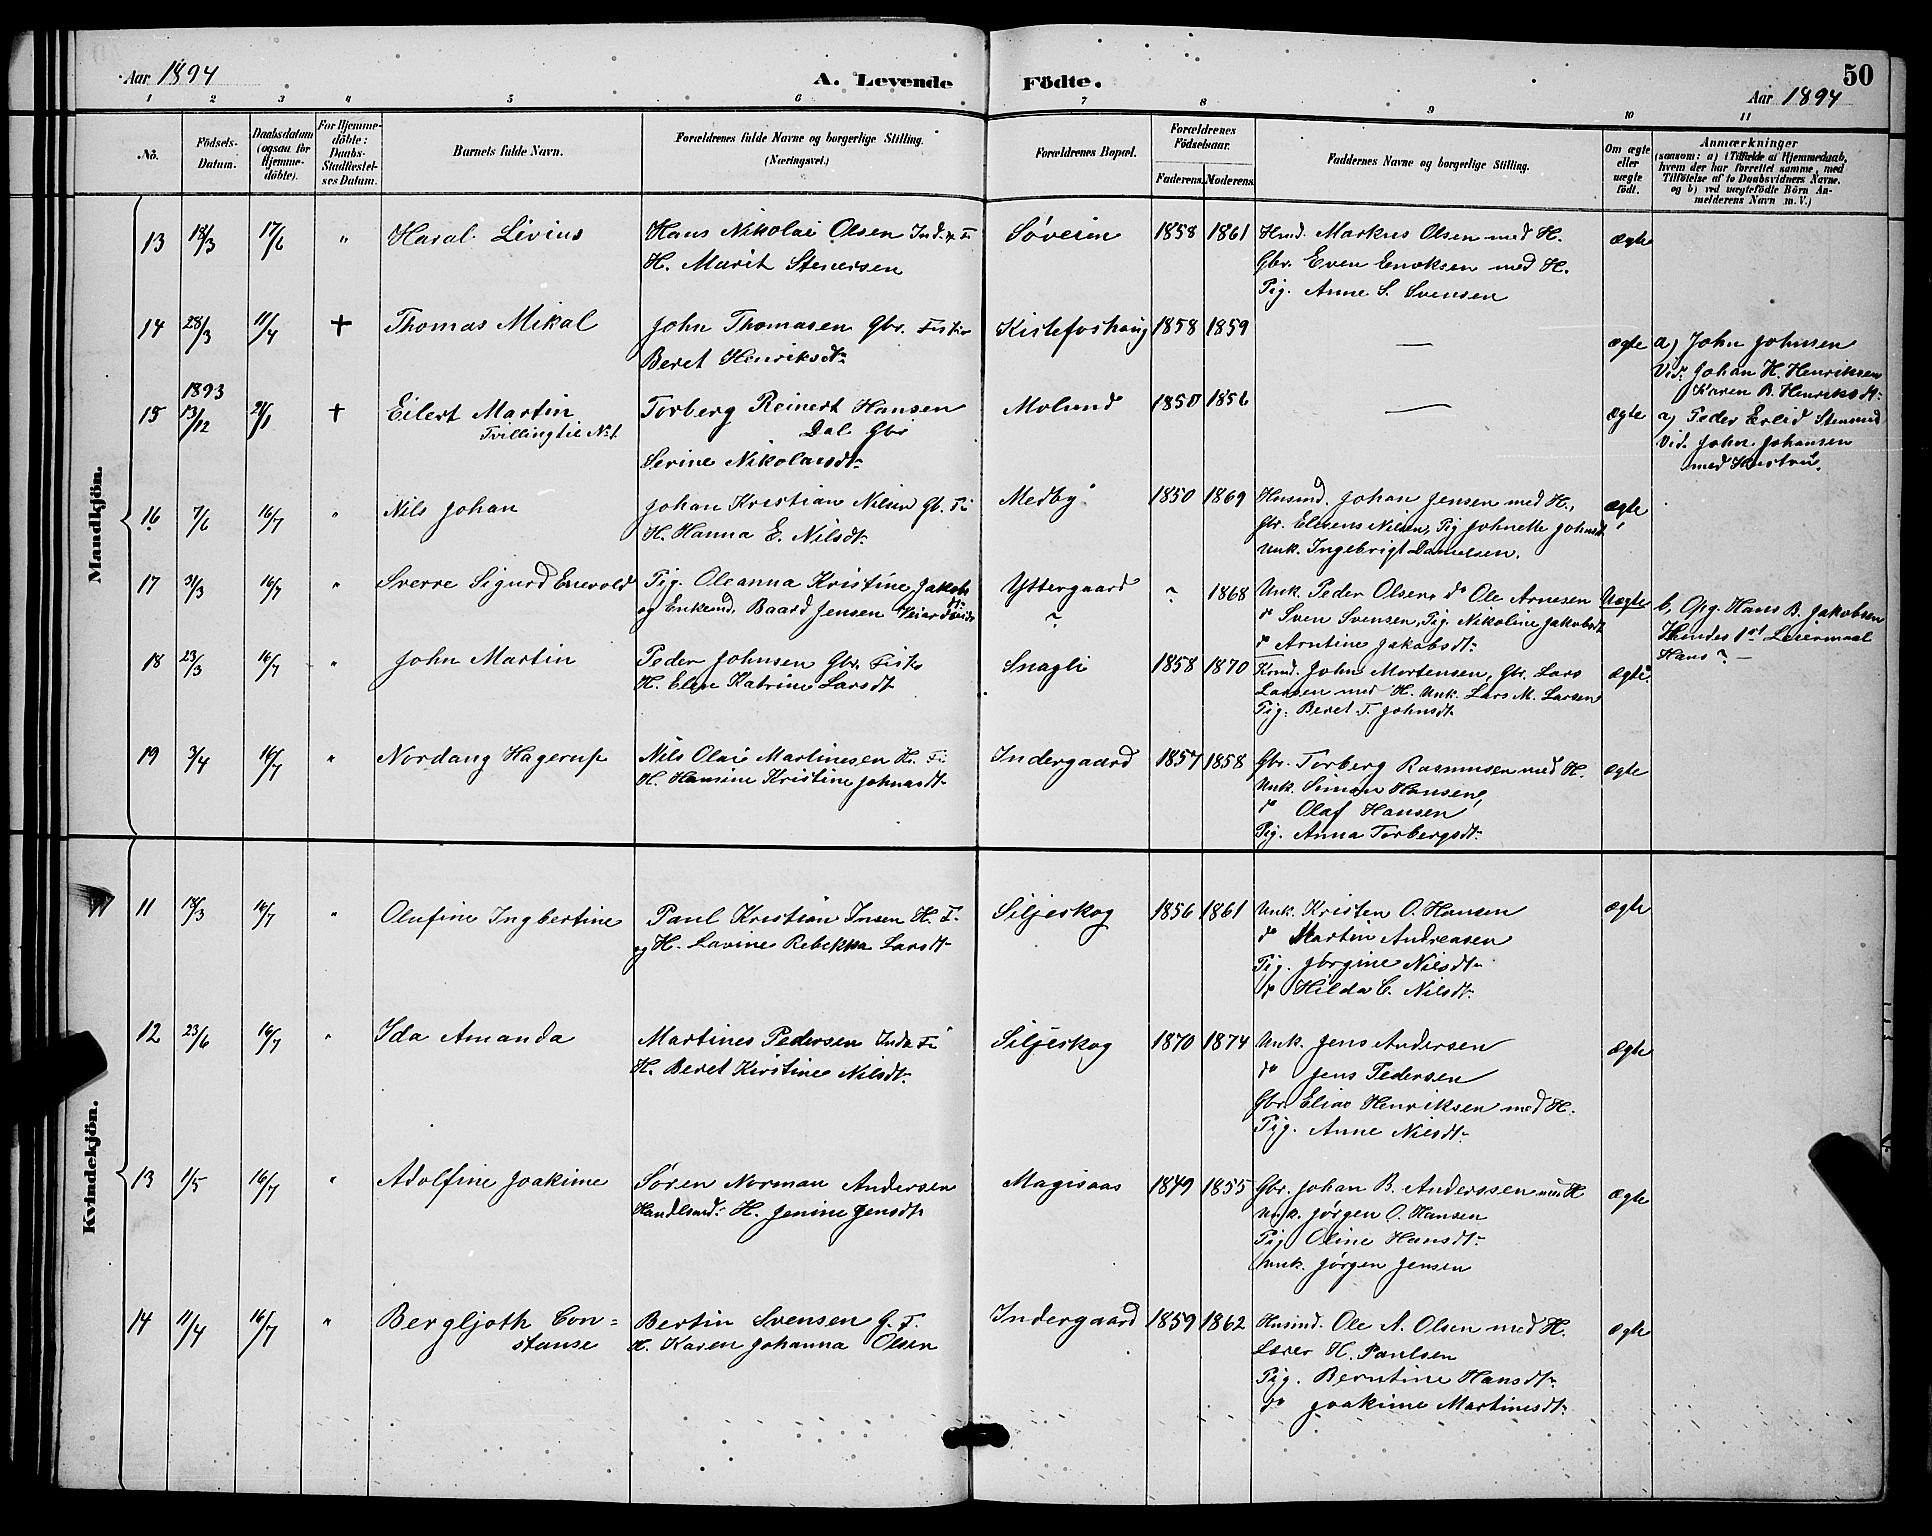 Aar 1894
A. Levende
Födte.
50
Aar 1894
1 2 3 4 5 6 7 8 9 10 11
No.
Födsels-
Datum.
Daabsdatum
(ogsaa for
Hjemme-
döbte).
For Hjemme-
döbte:
Daabs-
Stadfæstel-
ses Datum.
Barnets fulde Navn.
Forældrenes fulde Navne og borgerlige Stilling.
(Næringsvei.)
Forældrenes Bopæl.
Forældrenes
Födselsaar.
Faderens. Moderens.
Faddernes Navne og borgerlige Stilling.
Om ægte
eller
uægte
födt.
Anmærkninger
(saasom: a) i Tilfælde af Hjemmedaab,
hvem der har forrettet samme, med
Tilföielse af to Daabsvidners Navne,
og b) ved uægtefödte Börn An-
melderens Navn m. V.)
Mandkjön.
13 18/3 17/6 " Haral. Livius
Hans Nikolai Olsen Ind. & Fi
H. Marit Stenersen
Søveien 1858 1861
Husd. Markus Olsen med H.
Gbr. Even Enoksen med H.
Pig. Anne S. Svensen
ægte
14 28/3 11/4 + Thomas Mikal
John Thomasen Gbr. Fisker
Beret Henriksdtr
Kistefoshaug 1858 1859
—
ægte
a) John Johnsen
Vid. Johan H. Henriksen
Karen B. Henriksdt.
1893
15 13/12 + Eilert Martin
Tvilling til No 1.
Torberg Reinert Hansen
Dal Gbr
Serine Nikolaisdtr
Molund 1850 1856
—
ægte
a) Peder Erlid Stensund
Vid. John Johansen
med Hustru.
16 7/6 16/7 " Nils Johan
Johan Kristian Nilsen Gb. Fi
H. Hanna E. Nilsdt.
Medby 1850 1869
Husmd. Johan Jensen med H.,
Gbr. Elisens Nilsen, Pig Johnette Johnsdt
Unk. Ingebrigt Danielsen.
ægte
17 3/3 16/7 " Sverre Sigurd Enevold
Pig. Oleanna Kristine Jakobsdt
og Enkemd. Baard Jensen
Yttergaard
~
~ 1868
Unk. Peder Olsen, do Ole Arnesen
do Sven Svensen, Pig. Nikoline Jakobsdt
do Arntine Jakobsdt.
Uægte
b, Opg. Hans B. Jakobsen
Hendes 1ste Leiermaal
Hans ? —
18 23/3 16/7 " John Martin
Peder Johnsen Gbr. Fisker
H. Elen Katrine Larsdt.
Snagli 1858 1870
John Mortensen, Gbr. Lars
Larsen med H. Unk. Lars M. Larsen
Pig. Beret T. Johnsdt.
ægte.
19 3/4 16/7 " Nordang Hagerup
Nils Olai Martinesen H. Fi
H. Hansine Kristine Johnasdt.
Indergaard 1857 1858
Gbr. Torberg Rasmusen med H.
Unk. Simon Hansen,
do Olaf Hansen
Pig. Anna Torbergsdt.
ægte
Kvindekjön.
11 18/3 16/7 " Olufine Ingbertine
Paul Kristian Jnsen H. F.
og H. Lavine Rebekka Larsdt.
Siljeskog 1856 1861
Unk. Kristen O. Hansen
do Martin Andreasen
Pig. Jørgine Nilsdt.
do Hilda C. Nilsdt.
ægte
12 23/6 16/7 " Ida Amanda
Martines Pedersen Inds Fi
H. Beret Kirstine Nilsdt.
Siljeskog 1870 1874
Unk. Jens Andersen
do Jens Pedersen
Gbr. Elias Henriksen med H.
Pig. Anne Nilsdt.
ægte
13 1/5 16/7 " Adolfine Joakime
Søren Norman Andersen
Handlsmd. H. Jenine Jensdt.
Magisaas 1849 1855
Gbr. Johan B. Anderssen med H
Unk. Jørgen O. Hansen
Pig Oline Hansdt.
Unk. Jørgen Jensen
ægte
14 11/4 16/7 " Bergljoth Con=
stanse
Bertin Svensen G. F.
H. Karen Johanna Olsen
Indergaard 1859 1862
Husmd. Ole A. Olsen med H.
Lærer H. Paulsen
Pig. Berntine Hansdt.
do Joakime Martinesdt.
ægte